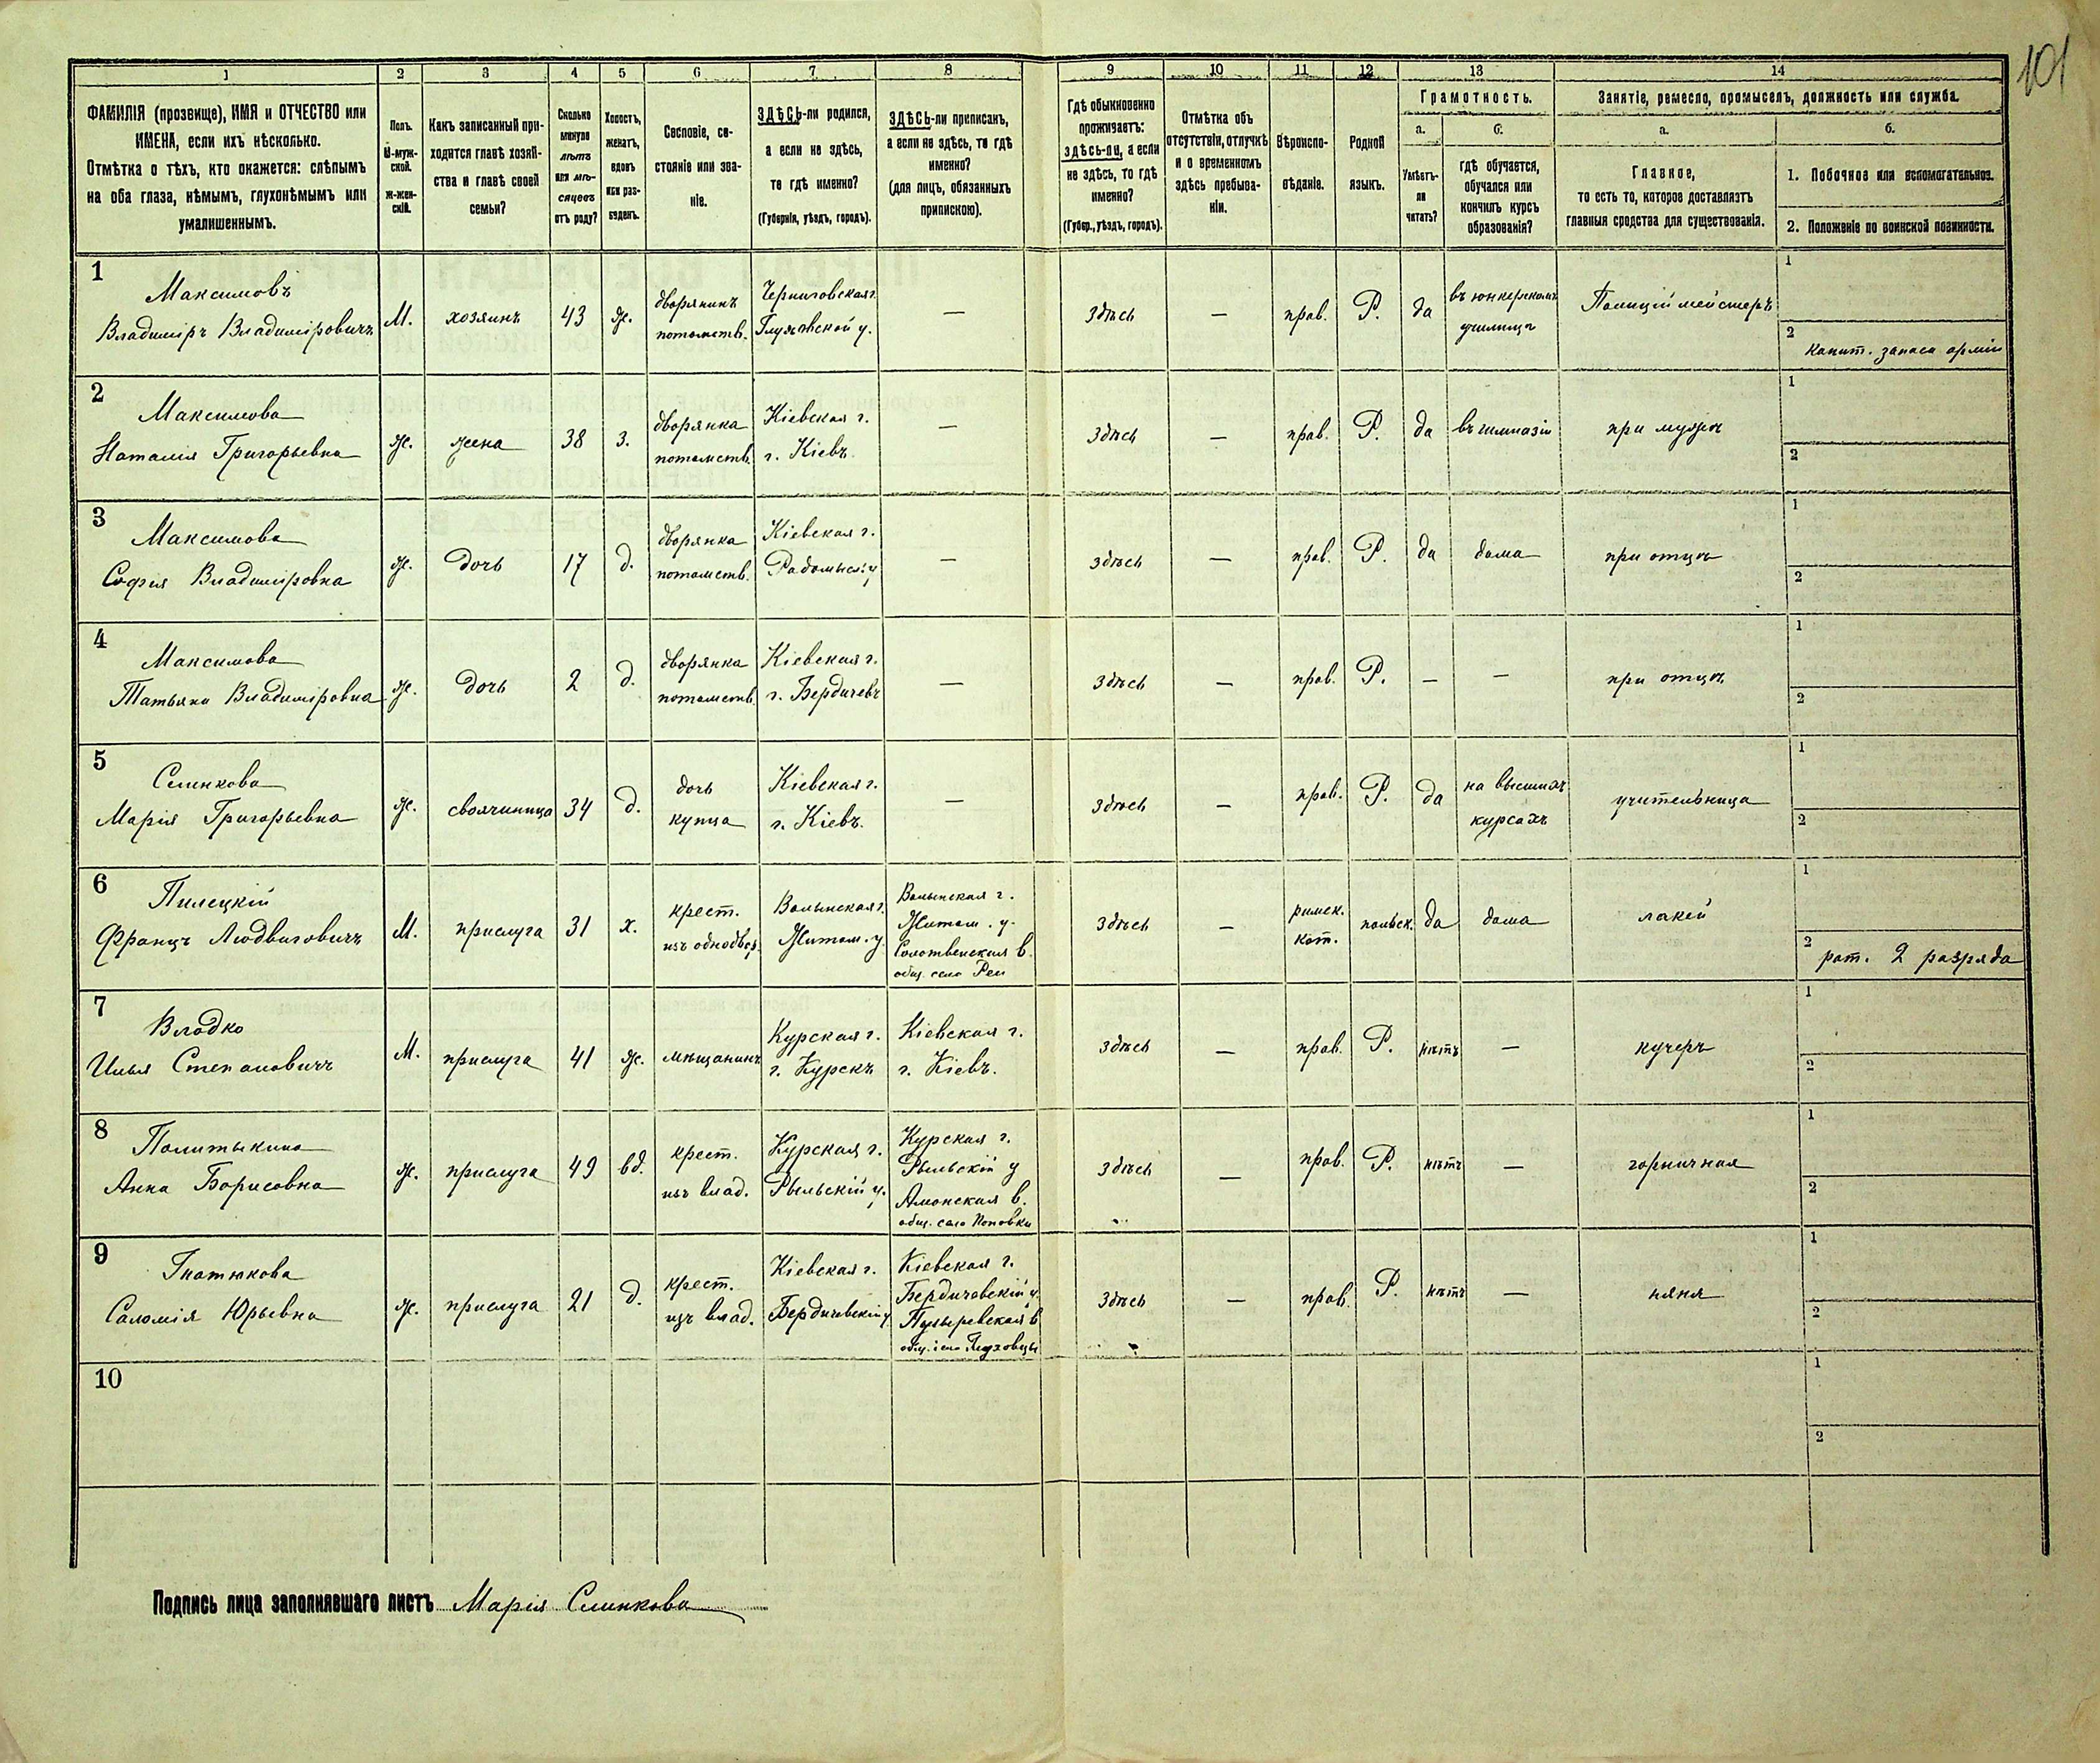 101
1 2 3 4 5 6 7 8 9 10 11 12 13 14
ФАМИЛІЯ (прозвище), ИМЯ и ОТЧЕСТВО или
ИМЕНА, если ихъ нѣсколько.
Отмѣтка о тѣхъ, кто окажется: слѣпымъ
на оба глаза, нѣмымъ, глухонѣмымъ или
умалишеннымъ.
Полъ.
М-муж-
ской.
ж-жен-
скій.
Какъ записанный при-
ходится главѣ хозяй-
ства и главѣ своей
семьи?
Сколько
минуло
лѣтъ
или мѣ-
сяцевъ
отъ роду?
Холостъ,
женатъ,
вдовъ
или раз-
веденъ.
Сословіе, со-
стояніе или зва-
ніе.
ЗДѢСЬ-ли родился,
а если не здѣсь,
то гдѣ именно?
(Губернія, уѣздъ, городъ).
ЗДѢСЬ-ли приписанъ,
а если не здѣсь, то гдѣ
именно?
(для лицъ, обязанныхъ
припискою).
Гдѣ обыкновенно
проживаетъ:
здѣсь-ли, а если
не здѣсь, то гдѣ
именно?
(Губер., уѣздъ, городъ).
Отмѣтка объ
отсутствіи, отлучкѣ
и о временномъ
здѣсь пребыва-
ніи.
Вѣроиспо-
вѣданіе.
Родной
языкъ.
Грамотность.
а.
Умѣетъ-
ли
читать?
б.
гдѣ обучается,
обучался или
кончилъ курсъ
образованія?
Занятіе, ремесло, промыселъ, должность или служба.
а.
Главное,
то есть то, которое доставляетъ
главныя средства для существованія.
б.
1. Побочное или вспомогательное.
2. Положеніе по воинской повинности.
1
Максимовъ
Владиміръ Владиміровичъ
М.
хозяинъ
43
ж.
дворянинъ
потомств.
Черниговская г.
Глуховской у.
—
здѣсь
—
прав.
Р.
да
въ юнкерскомъ
училищѣ
Полиціймейстеръ
1
2
капит. запаса арміи
2
Максимова
Наталія Григорьевна
ж.
жена
38
з.
дворянка
потомств.
Кіевская г.
г. Кіевъ.
—
здѣсь
—
прав.
Р.
да
въ гимназіи
при мужѣ
1
2
3
Максимова
Софія Владиміровна
ж.
дочь
17
д.
дворянка
потомств.
Кіевская г.
Радомысл. у
—
здѣсь
—
прав.
Р.
да
дома
при отцѣ
1
2
4
Максимова
Татьяна Владиміровна
ж.
дочь
2
д.
дворянка
потомств.
Кіевская г.
г. Бердичевъ
—
здѣсь
—
прав.
Р.
—
—
при отцѣ
1
2
5
Селинкова
Марія Григорьевна
ж.
своячиница
34
д.
дочь
купца
Кіевская г.
г. Кіевъ.
—
здѣсь
—
прав.
Р.
да
на высшихъ
курсахъ
учительница
1
2
6
Пилецкій
Францъ Людвиговичъ
М.
прислуга
31
х.
крест.
изъ однодвор.
Волынская г.
Житом. у.
Волынская г.
Житом. у.
Солотвенская в.
общ. село Реи
здѣсь
—
римск.
кат.
польск.
да
дома
лакей
1
2
рат. 2 разряда
7
Владко
Илья Степановичъ
М.
прислуга
41
ж.
мѣщанинъ
Курская г.
г. Курскъ
Кіевская г.
г. Кіевъ.
здѣсь
—
прав.
Р.
нѣтъ
—
кучеръ
1
2
8
Политыкина
Анна Борисовна
ж.
прислуга
49
вд.
крест.
изъ влад.
Курская г.
Рыльскій у.
Курская г.
Рыльскій у
Амонская в.
общ. село Поповки
здѣсь
—
прав.
Р.
нѣтъ
—
горничная
1
2
9
Гнатюкова
Саломія Юрьевна
ж.
прислуга
21
д.
крест.
изъ влад.
Кіевская г.
Бердичевскій у.
Кіевская г.
Бердичевскій у.
Пузыревская в
общ. село Глуховцы
здѣсь
—
прав.
Р.
нѣтъ
—
няня
1
2
10
1
2
Подпись лица заполнявшаго листъ Марія Селинкова